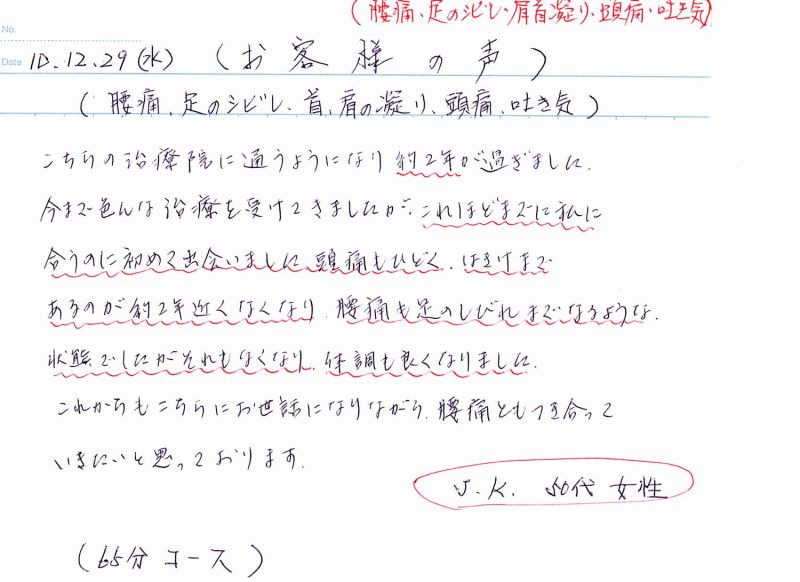 (腰痛、足のシビレ、肩首凝り、頭痛、吐き気)
No.
Date 10.12.29(水) (お客様の声)
(腰痛、足のシビレ、首、肩の凝り、頭痛、吐き気)
こちらの治療院に通うようになり約2年が過ぎました。
今まで色んな治療を受けてきましたが、これほどまでに私に
合うのに初めて出会いました。頭痛もひどく、はきけまで
あるのが約2年近くなくなり、腰痛も足のしびれまでなるような、
状態でしたがそれもなくなり、体調も良くなりました。
これからもこちらにお世話になりながら、腰痛ともつき合って
いきたいと思っております。
J.K. 50代 女性
(65分コース)